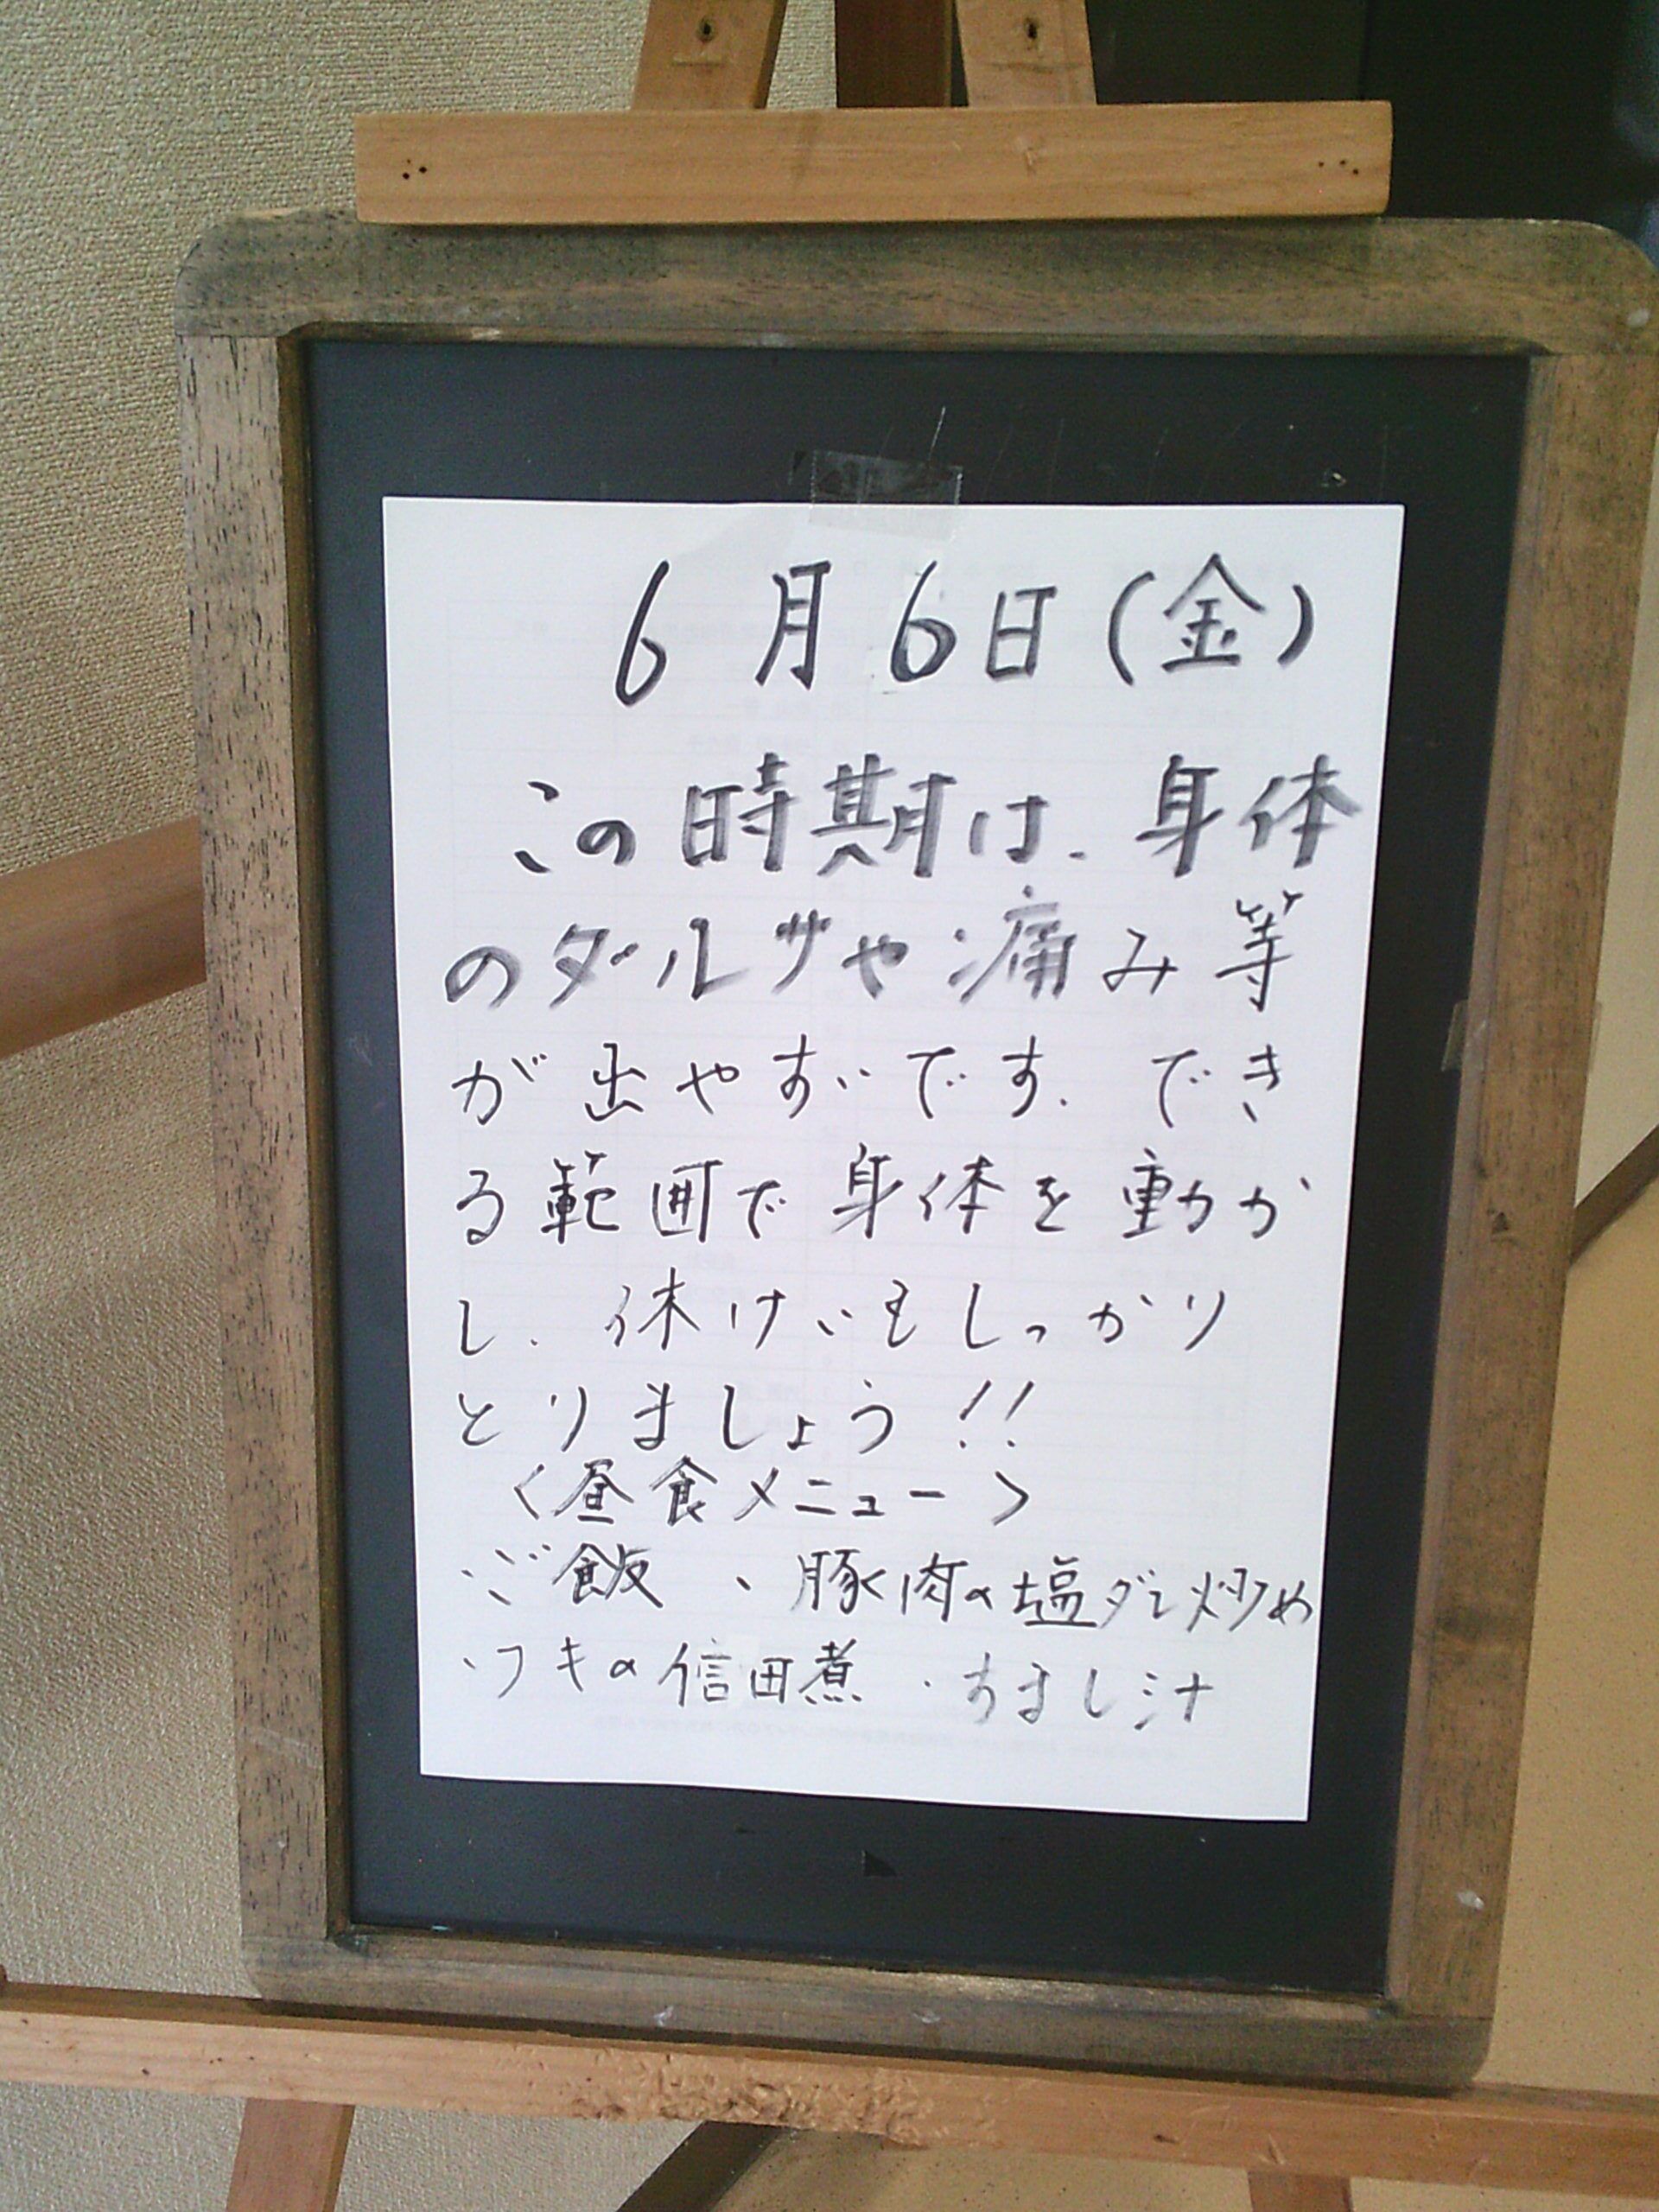 6月6日(金)
この時期は、身体
のダルサや痛み等
が出やすいです。でき
る範囲で身体を動か
し、休けいもしっかり
とりましょう!!
<昼食メニュー>
・ご飯 ・豚肉の塩ダレ炒め
・フキの信田煮 ・すまし汁